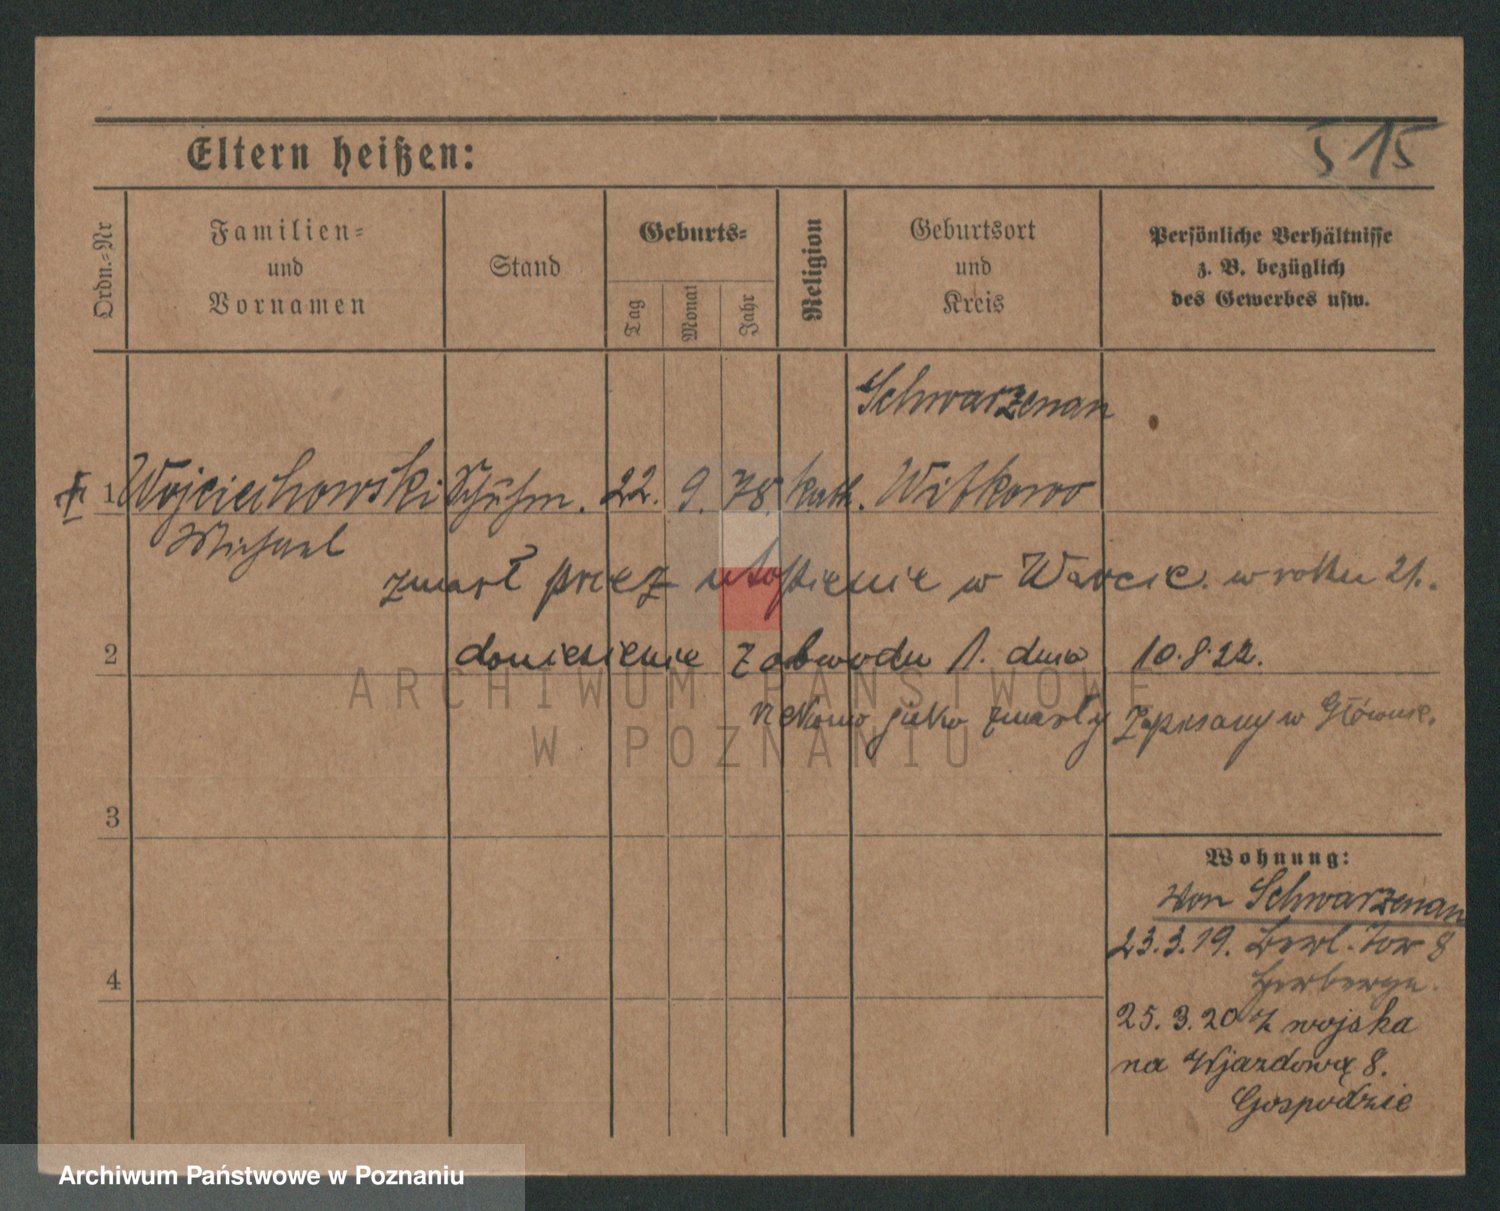 515
Eltern heißen:
Ordn.-Nr
Familien-
und
Vornamen
Stand
Geburts-
Tag
Monat
Jahr
Religion
Geburtsort
und
Kreis
Persönliche Verhältnisse
z. B. bezüglich
des Gewerbes usw.
Schwarzenau
1 Wojciechowski Schuhm. 22. 9. 78. kath. Witkowo
Michael
zmarł przez utopienie w Warcie w roku 21.
2 doniesienie z obwodu 1. dnia 10.8.22.
jako zmarły zapisany w Głównie.
ARCHIWUM PAŃSTWOWE
W POZNANIU
3
Wohnung:
von Schwarzenau
23.3.19. Berl. Tor 8
Herberge.
4
25.3.20 z wojska
na Wjazdową 8.
Gospodzie
Archiwum Państwowe w Poznaniu